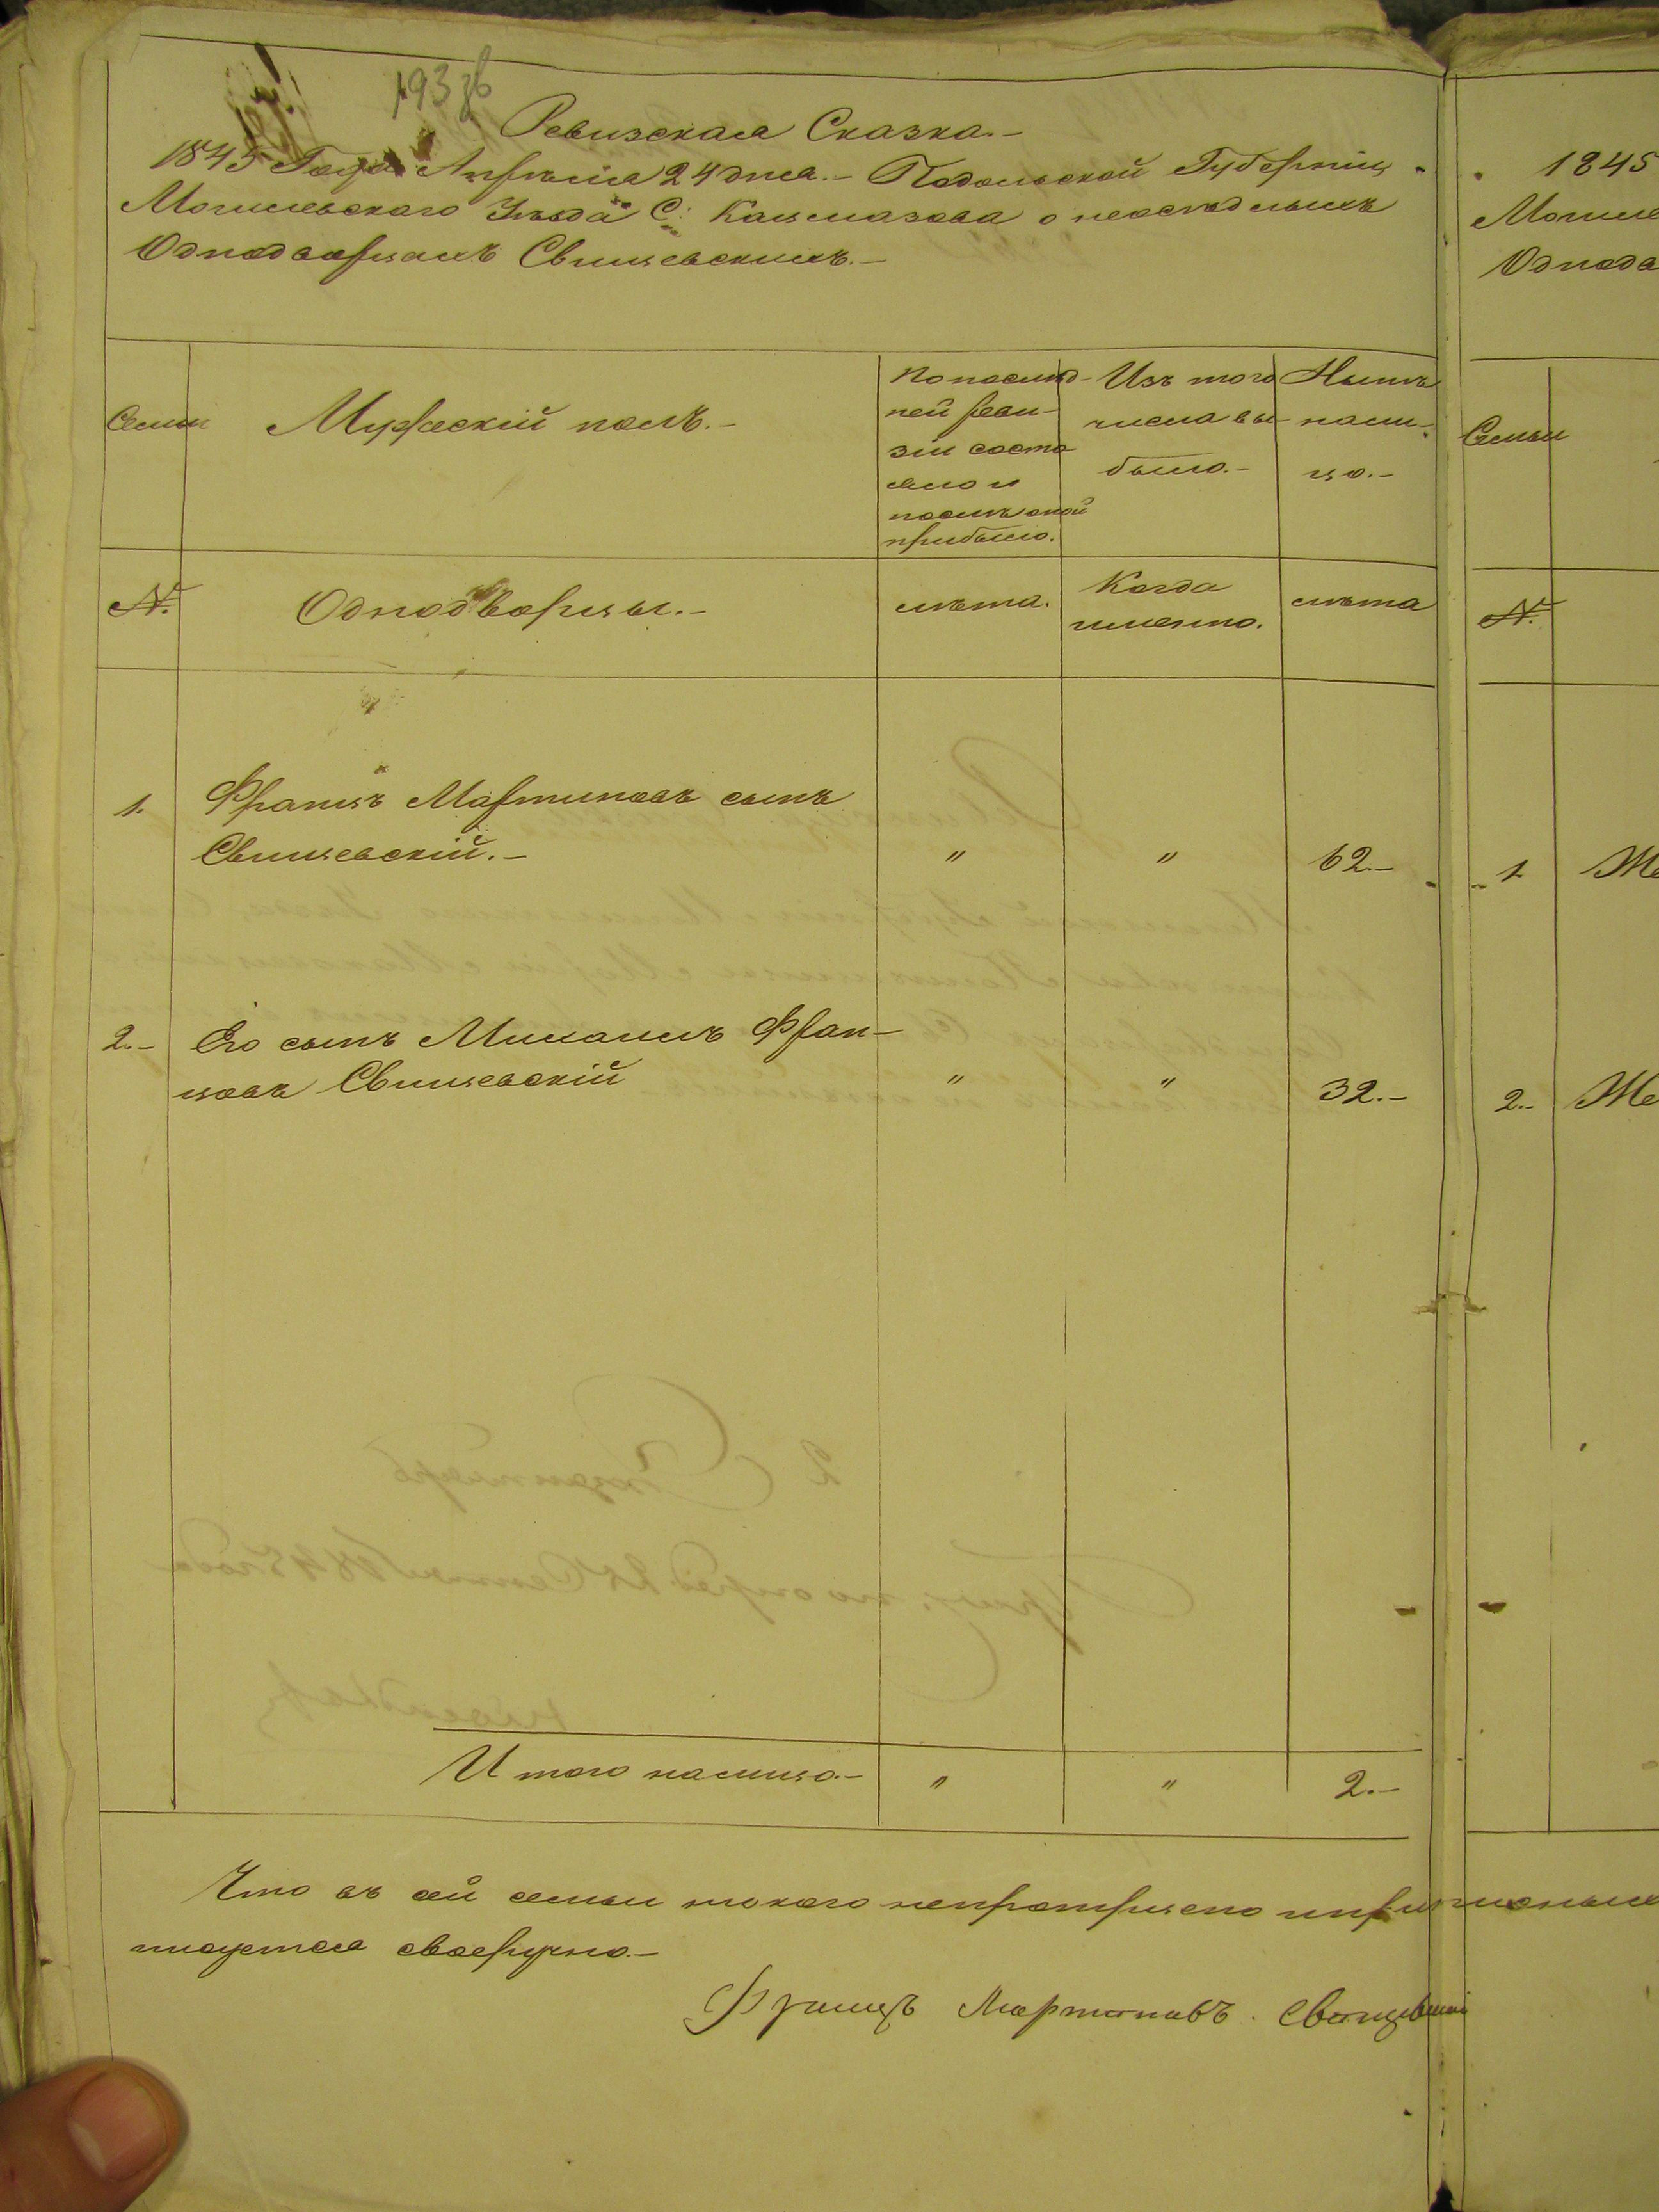 193 зв
Ревизская Сказка.-
1845 Года Апреля 24 дня.- Подольской Губерніи
Могилевскаго Уѣзда С: Кацмазова о неосѣдлыхъ
Однодворцахъ Свищевскихъ.-
Семьи
Мужескій полъ.-
По послѣд-
ней реви-
зіи состо
яло и
послѣ оной
прибыло.
Изъ того
числа вы-
было.-
Нынѣ
нали-
цо.-
N.
Однодворцы.-
лѣта.
Когда
именно.
лѣта
1. Францъ Мартиновъ сынъ
Свищевскій.- " " 62.-
2.- Его сынъ Михаилъ Фран-
цовъ Свищевскій " " 32.-
И того налицо.- " " 2.-
Что въ сей семьи никого непропущено
писуется своеручно.-
Францъ Мартиновъ. Свищевскій
1845
Могиле
Однодв
Семьи
N.
1. Же
2.- Же